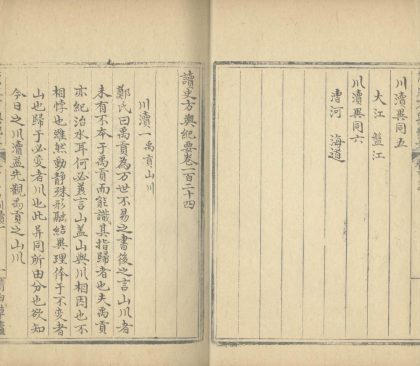 川瀆異同五
大江 盤江
川瀆異同六
漕河 海道
讀史方輿紀要卷一百二十四
川瀆一 禹貢山川
鄭氏曰禹貢為萬世不易之書後之言山川者
未有不本于禹貢而能識其指歸者也夫禹貢
亦紀治水耳何必兼言山盖山與川相因也不
相悖也雖然動静殊形融結異理侔于不變者
山也歸于必變者川也此異同所由分也欲知
今日之川瀆盍先觀禹貢之山川